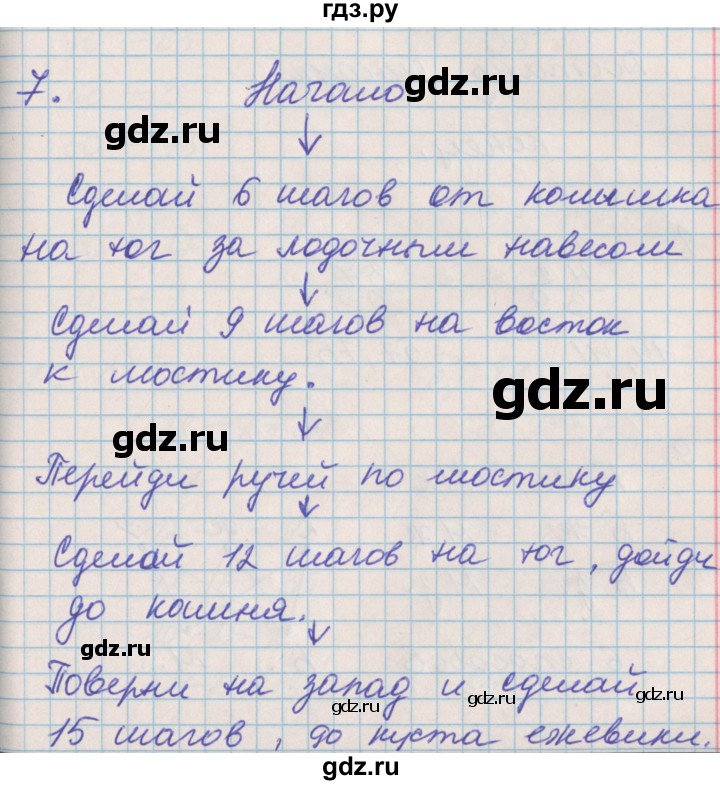 гдз.ру
7. Начало
gdz.ru
gdz.ru
Сделай 6 шагов от колышка
на юг за лодочным навесом
Сделай 9 шагов на восток
к мостику.
gdz.ru
gdz.ru
Перейди ручей по мостику
Сделай 12 шагов на юг, дойди
до камня.
gdz.ru
Поверни на запад и сделай
gdz.ru
gdz.ru
gdz.ru
15 шагов, до куста ежевики.
gdz.ru